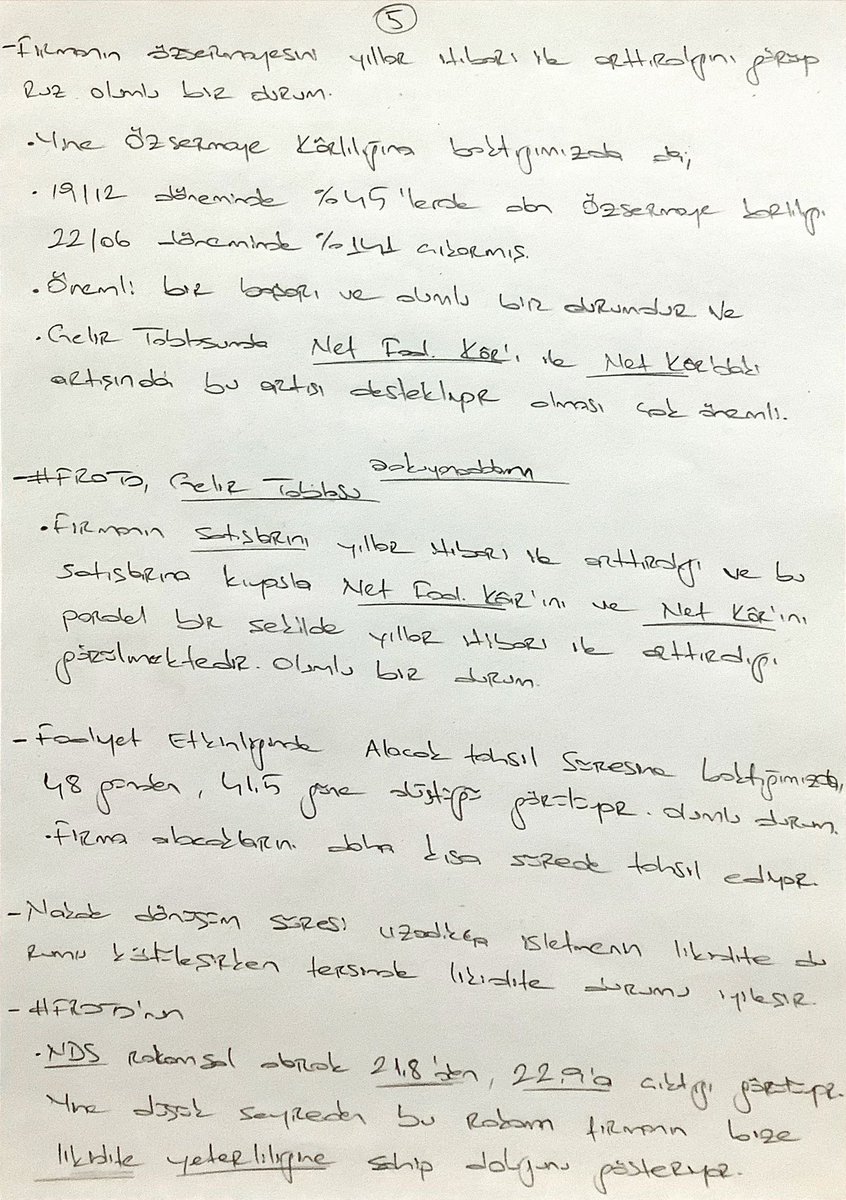 5
-Firmanın özsermayesini yıllar itibarı ile arttırdığını görüyo
ruz olumlu bir durum.
.Yine Özsermaye Kârlılığına baktığımızda da;
. 19/12 döneminde %45'lerde olan Özsermaye karlılığı
22/06 döneminde %141 çıkarmış.
. Önemli bir başarı ve olumlu bir durumdur ve
. Gelir Tablosunda Net Faal. Kâr'ı ile Net Kâr'daki
artışında bu artışı destekliyor olması çok önemli.
-#FROTO, Gelir Tablosu
. Firmanın satışlarını yıllar itibarı ile arttırdığı ve bu
satışlarına kıyasla Net Faal. Kâr'ını ve Net Kâr'ını
paralel bir şekilde yıllar itibarı ile arttırdığı
görülmektedir. Olumlu bir durum.
- Faaliyet Etkinliğinde Alacak tahsil süresine baktığımızda,
48 günden, 41.5 güne düştüğü görülüyor. olumlu durum.
. Firma alacaklarını daha kısa sürede tahsil ediyor.
- Nakde dönüşüm süresi uzadıkça işletmenin likidite du
rumu kötüleşirken tersinde likidite durumu iyileşir.
- #FROTO'nun
. NDS rakamsal olarak 21.8'den, 22.9'a çıktığı görülüyor.
Yine düşük seyreden bu rakam firmanın bize
likidite yeterliliğine sahip olduğunu gösteriyor.